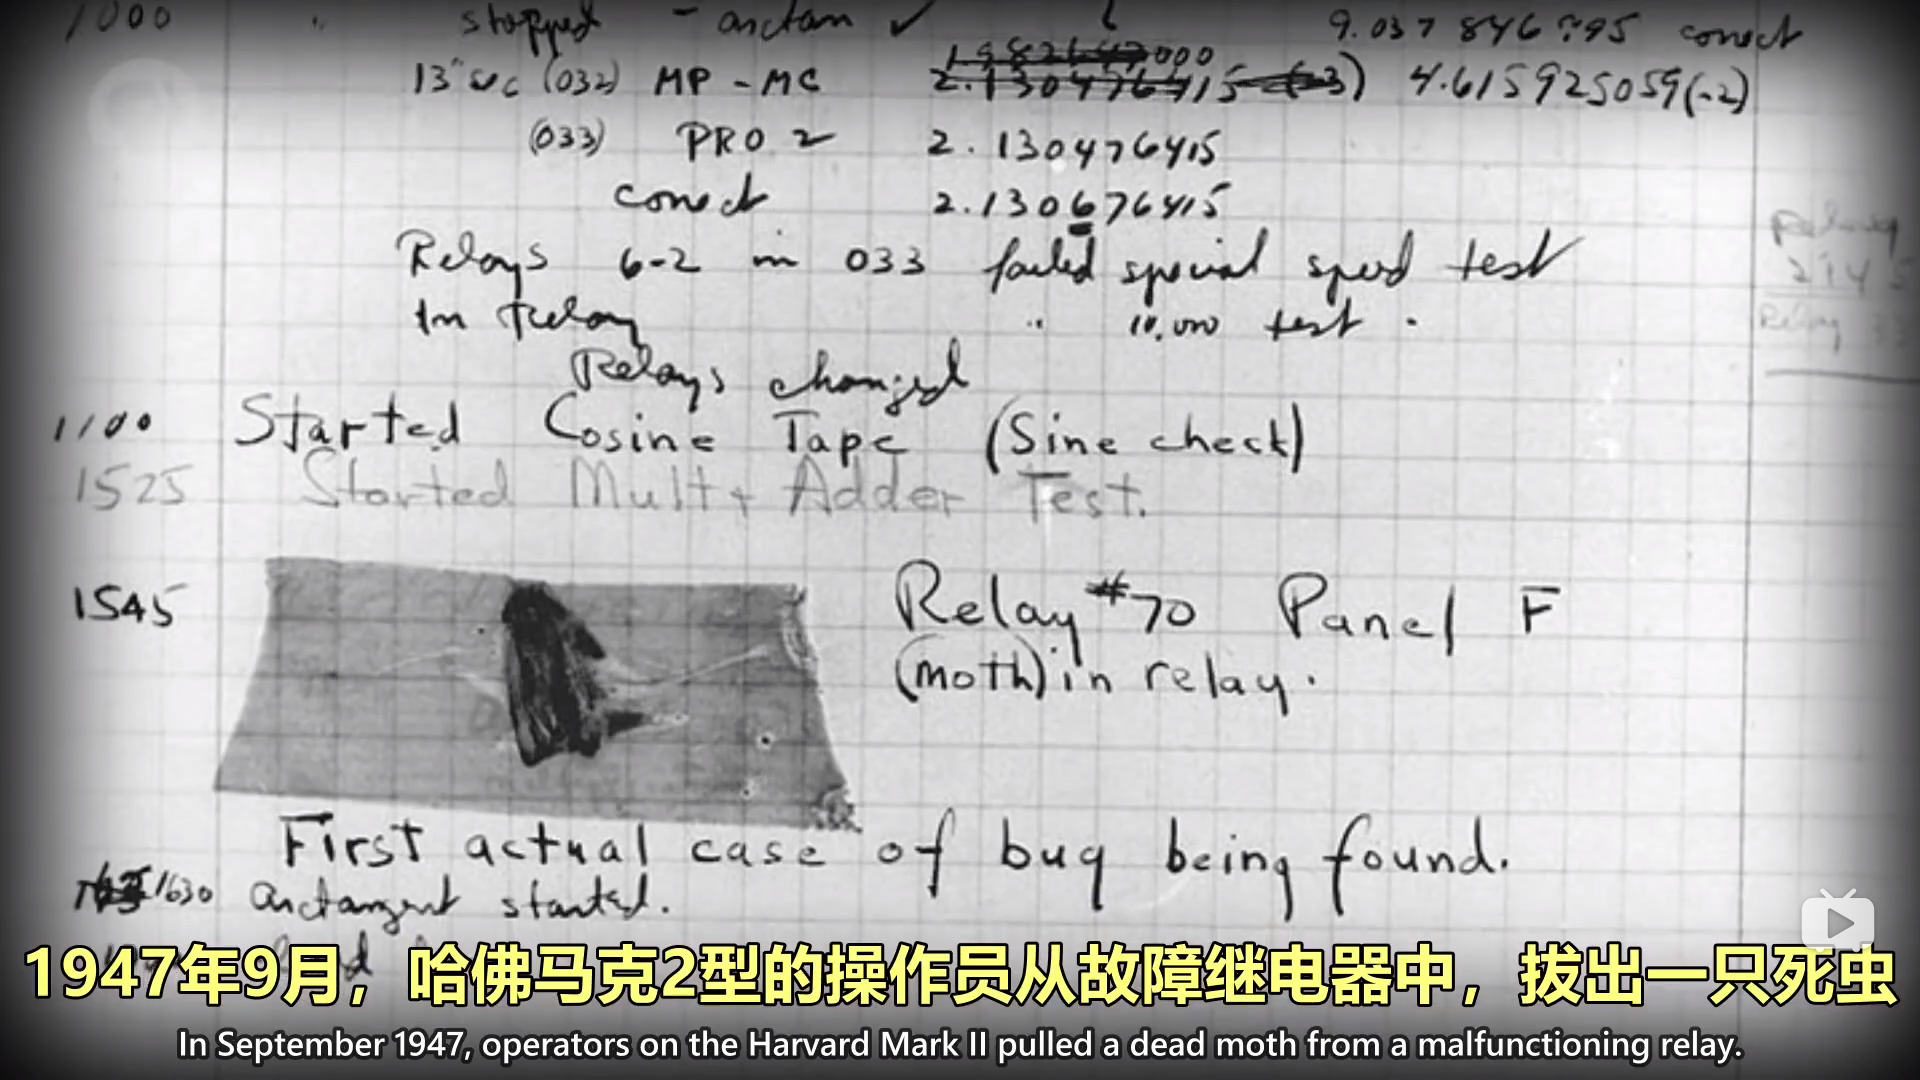 1000 stopped - arctan ✓ 9.037 846 795 correct
13" sec (032) MP - MC 1.982647000 2.130476415 (-3) 4.615925059(-2)
(033) PRO 2 2.130476415
correct 2.130676415
Relays 6-2 in 033 failed special speed test
In Relay " 10,000 test .
Relays changed
1100 Started Cosine Tape (Sine check)
1525 Started Mult + Adder Test.
1545 Relay #70 Panel F
(moth) in relay.
First actual case of bug being found.
1630 arctangent started.
1947年9月，哈佛马克2型的操作员从故障继电器中，拔出一只死虫
In September 1947, operators on the Harvard Mark II pulled a dead moth from a malfunctioning relay.